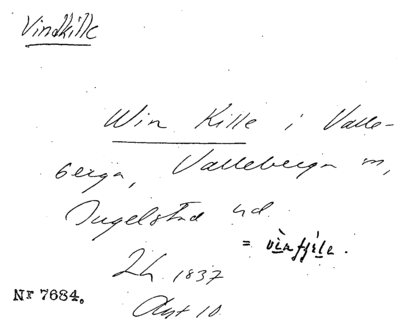 Vindkille
Win Kille i Valle-
berga, Valleberga sn,
Ingelstad hd.
= vìnfjìlə.
Lh. 1837
Nr 7684.
Akt 10.